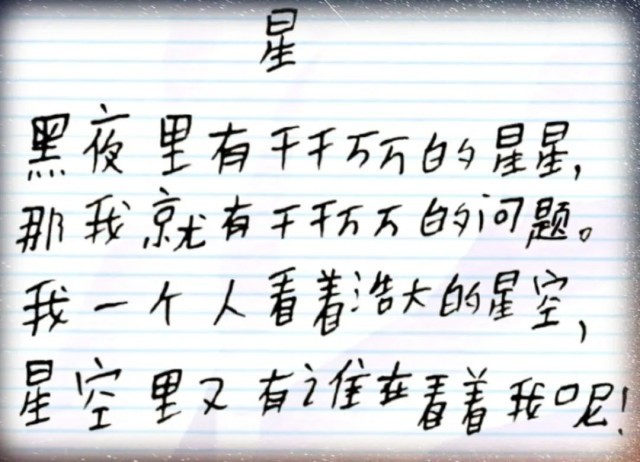 星
黑夜里有千千万万的星星,
那我就有千千万万的问题。
我一个人看着浩大的星空,
星空里又有谁在看着我呢!